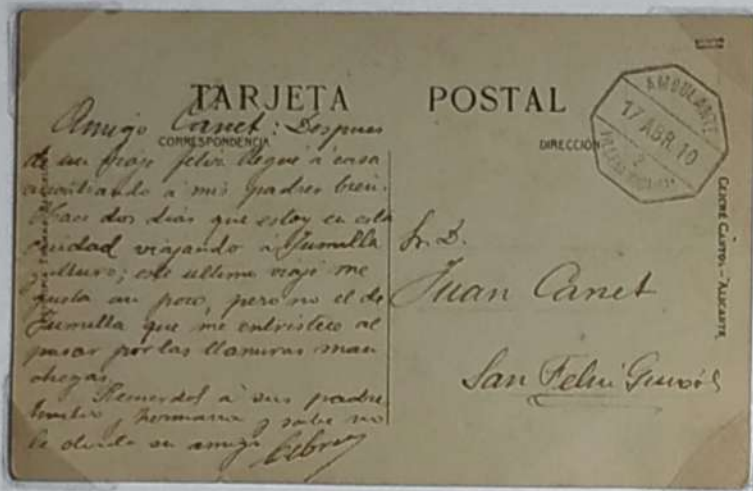 TARJETA POSTAL
CORRESPONDENCIA
DIRECCIÓN
AMBULANTE
17 ABR. 10
2
Amigo Canet: Despues
de un viaje feliz llegué á casa
encontrando á mis padres bien.
Hace dos dias que estoy en esta
ciudad viajando á Jumilla
este ultimo viaje me
gusta un poco, pero no el de
Jumilla que me entristece al
pasar por las llanuras man
chegas.
Recuerdos á sus padres
hermana y sabe no
le olvida su amigo
Sr. D.
Juan Canet
San Feliú Guixols
CLICHÉ CANTOS - ALICANTE